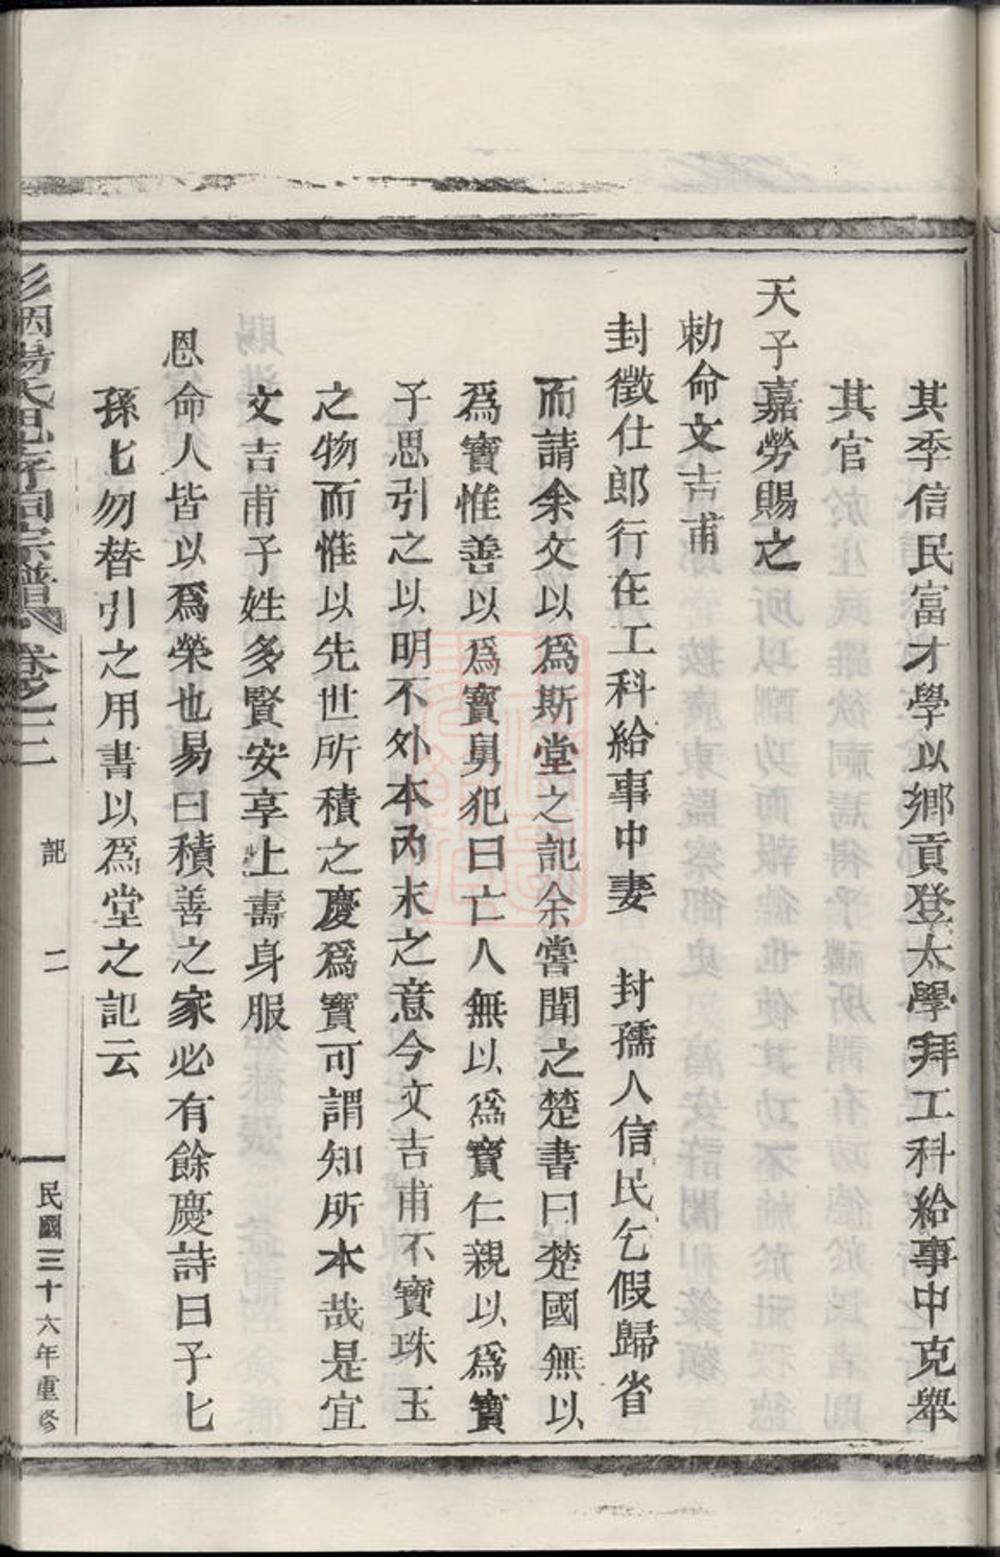 其季信民富才學以鄉貢登太學拜工科給事中克舉
其官
天子嘉勞賜之
勑命文吉甫
封徵仕郎行在工科給事中妻 封孺人信民乞假歸省
而請余文以爲斯堂之記余嘗聞之楚書曰楚國無以
爲寶惟善以爲寶舅犯曰亡人無以爲寶仁親以爲寶
子思引之以明不外本內末之意今文吉甫不寶珠玉
之物而惟以先世所積之慶爲寶可謂知所本哉是宜
文吉甫子姓多賢安享上壽身服
恩命人皆以爲榮也易曰積善之家必有餘慶詩曰子匕
孫匕勿替引之用書以爲堂之記云
湯氏思存祠宗譜 卷之三 記 二 民國三十六年重修